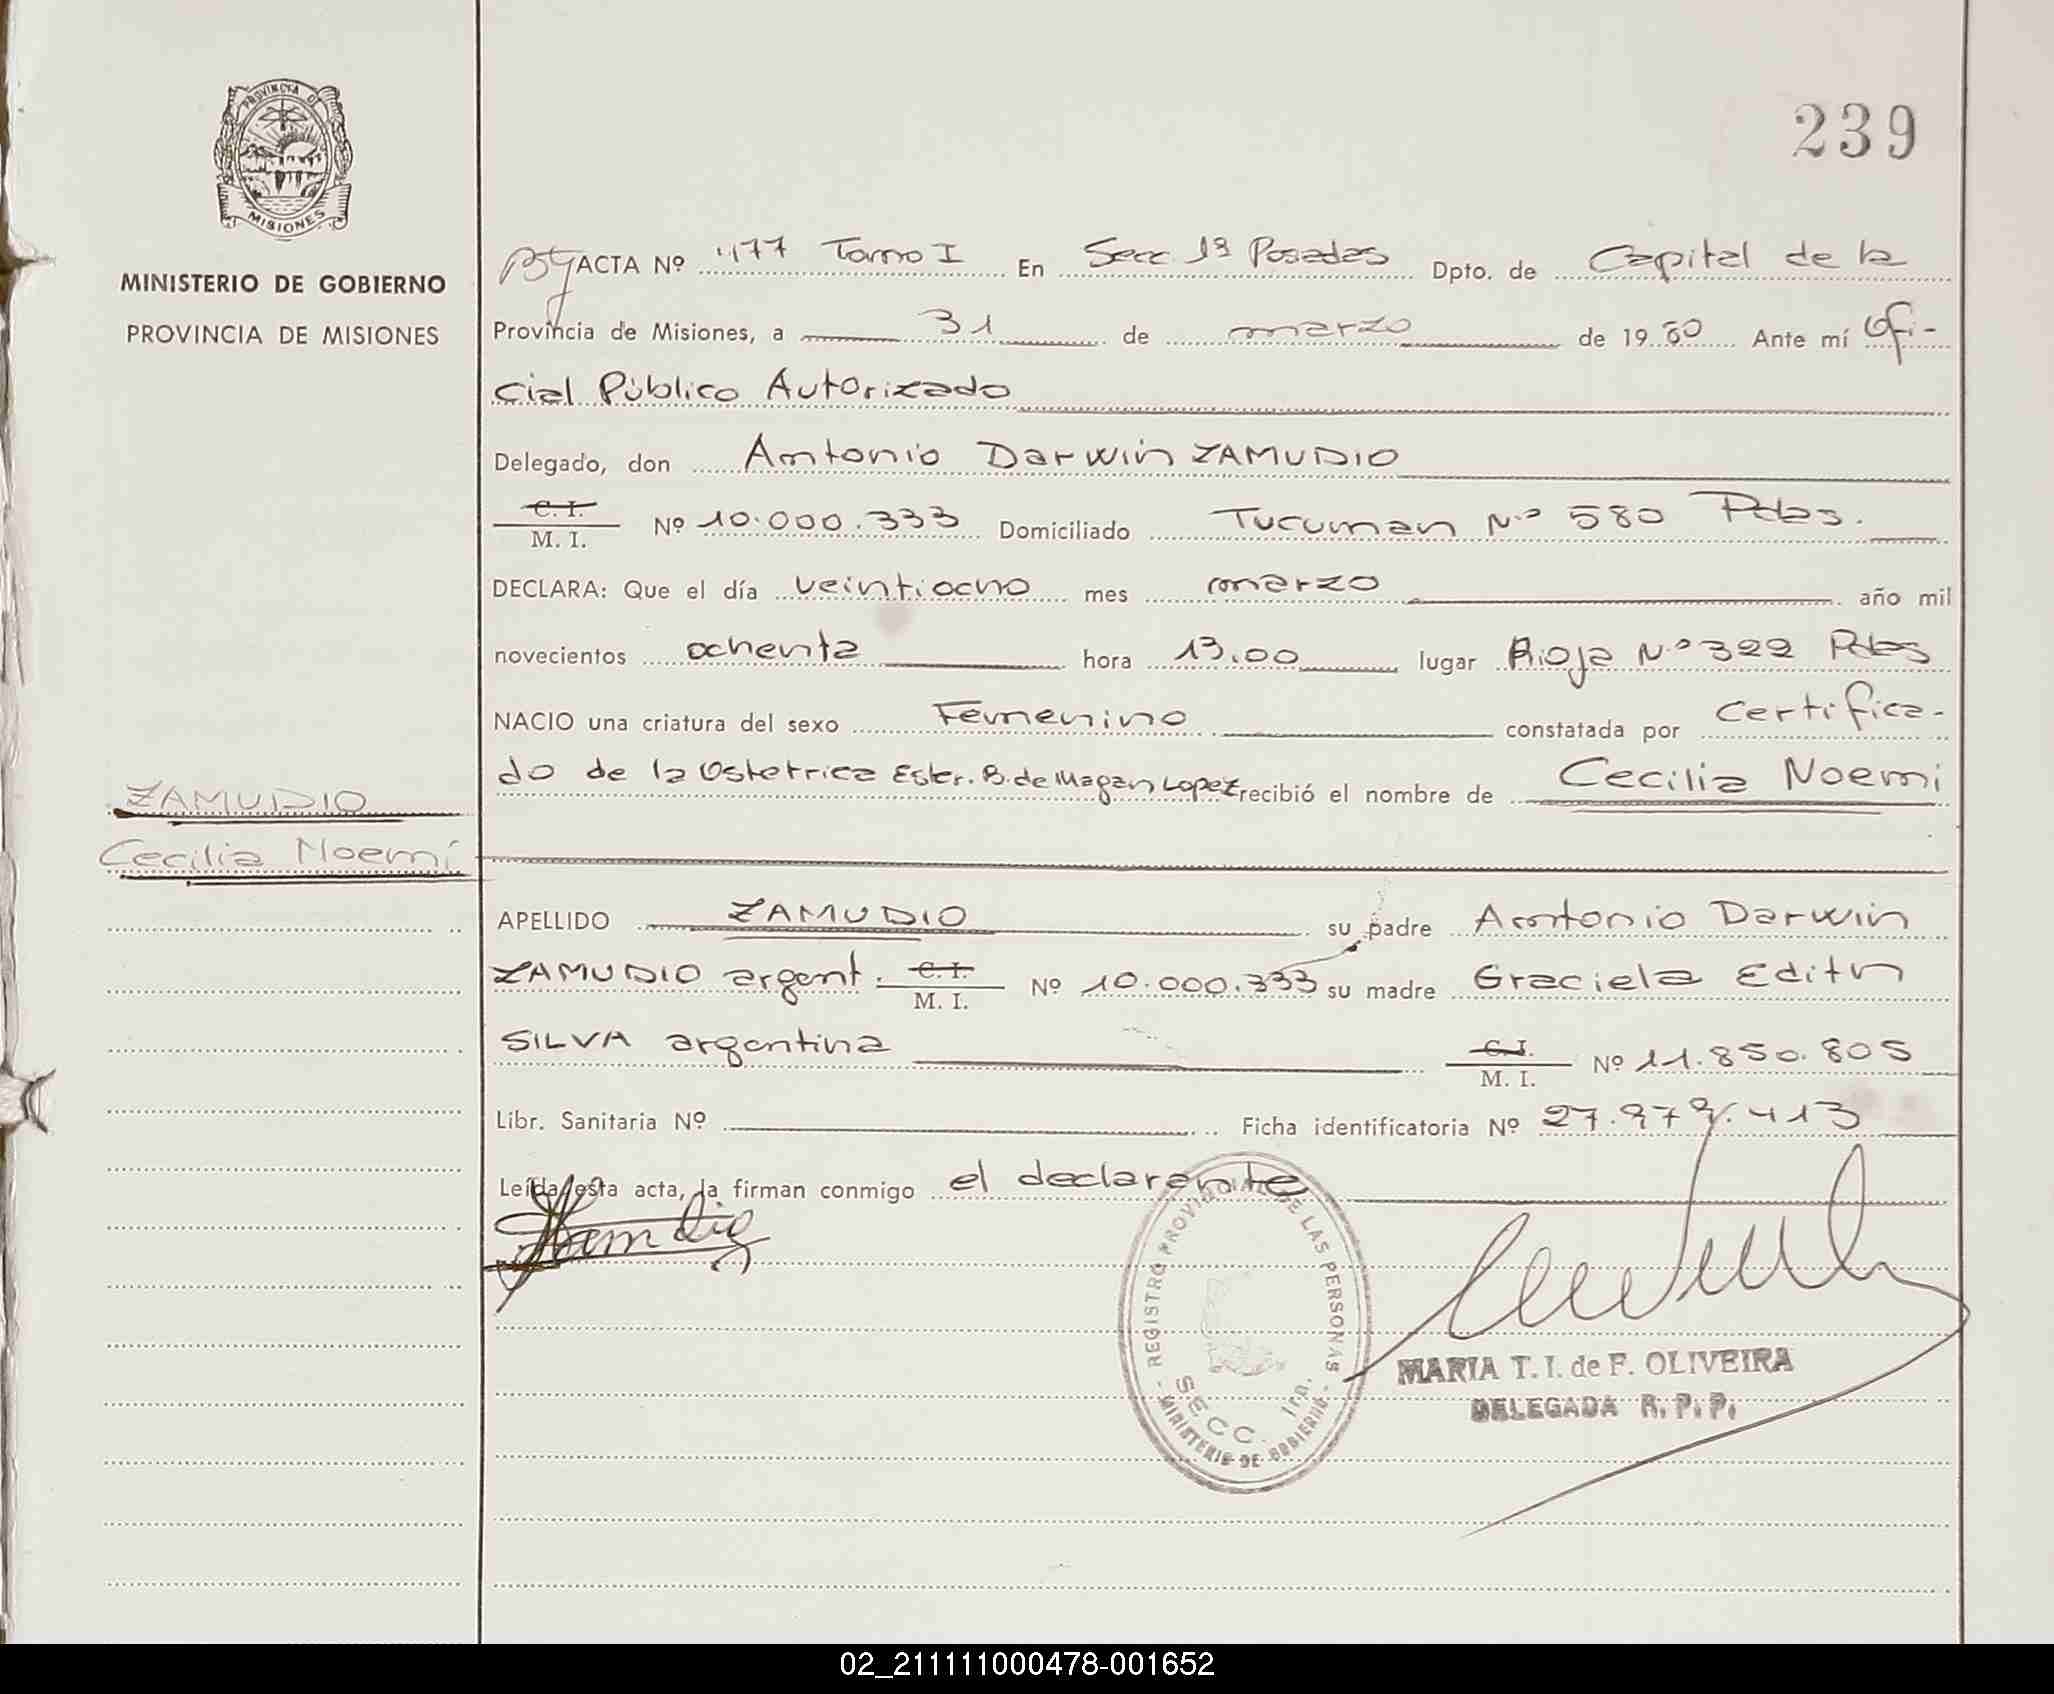 PROVINCIA DE
MISIONES
MINISTERIO DE GOBIERNO
PROVINCIA DE MISIONES
239
ACTA Nº 477 Tomo I En Secc 1ª Posadas Dpto. de Capital de la
Provincia de Misiones, a 31 de marzo de 1980 Ante mí Ofi-
cial Público Autorizado
Delegado, don Antonio Darwin ZAMUDIO
C. I.
M. I. Nº 10.000.333 Domiciliado Tucuman Nº 580 Pdas.
DECLARA: Que el día veintiocho mes marzo año mil
novecientos ochenta hora 13.00 lugar Rioja Nº 322 Pdas
NACIO una criatura del sexo Femenino constatada por Certifica-
do de la Ostetrica Ester. B. de Magan Lopez recibió el nombre de Cecilia Noemi
ZAMUDIO
Cecilia Noemí
APELLIDO ZAMUDIO su padre Antonio Darwin
ZAMUDIO argent. C. I. M. I. Nº 10.000.333 su madre Graciela Edith
SILVA argentina C. I. M. I. Nº 11.850.805
Libr. Sanitaria Nº Ficha identificatoria Nº 27.979.413
Leída esta acta, la firman conmigo el declarante
REGISTRO PROVINCIAL DE LAS PERSONAS
SECC. 1ra.
MINISTERIO DE GOBIERNO
MARIA T. I. de F. OLIVEIRA
DELEGADA R. P. P.
02_211111000478-001652